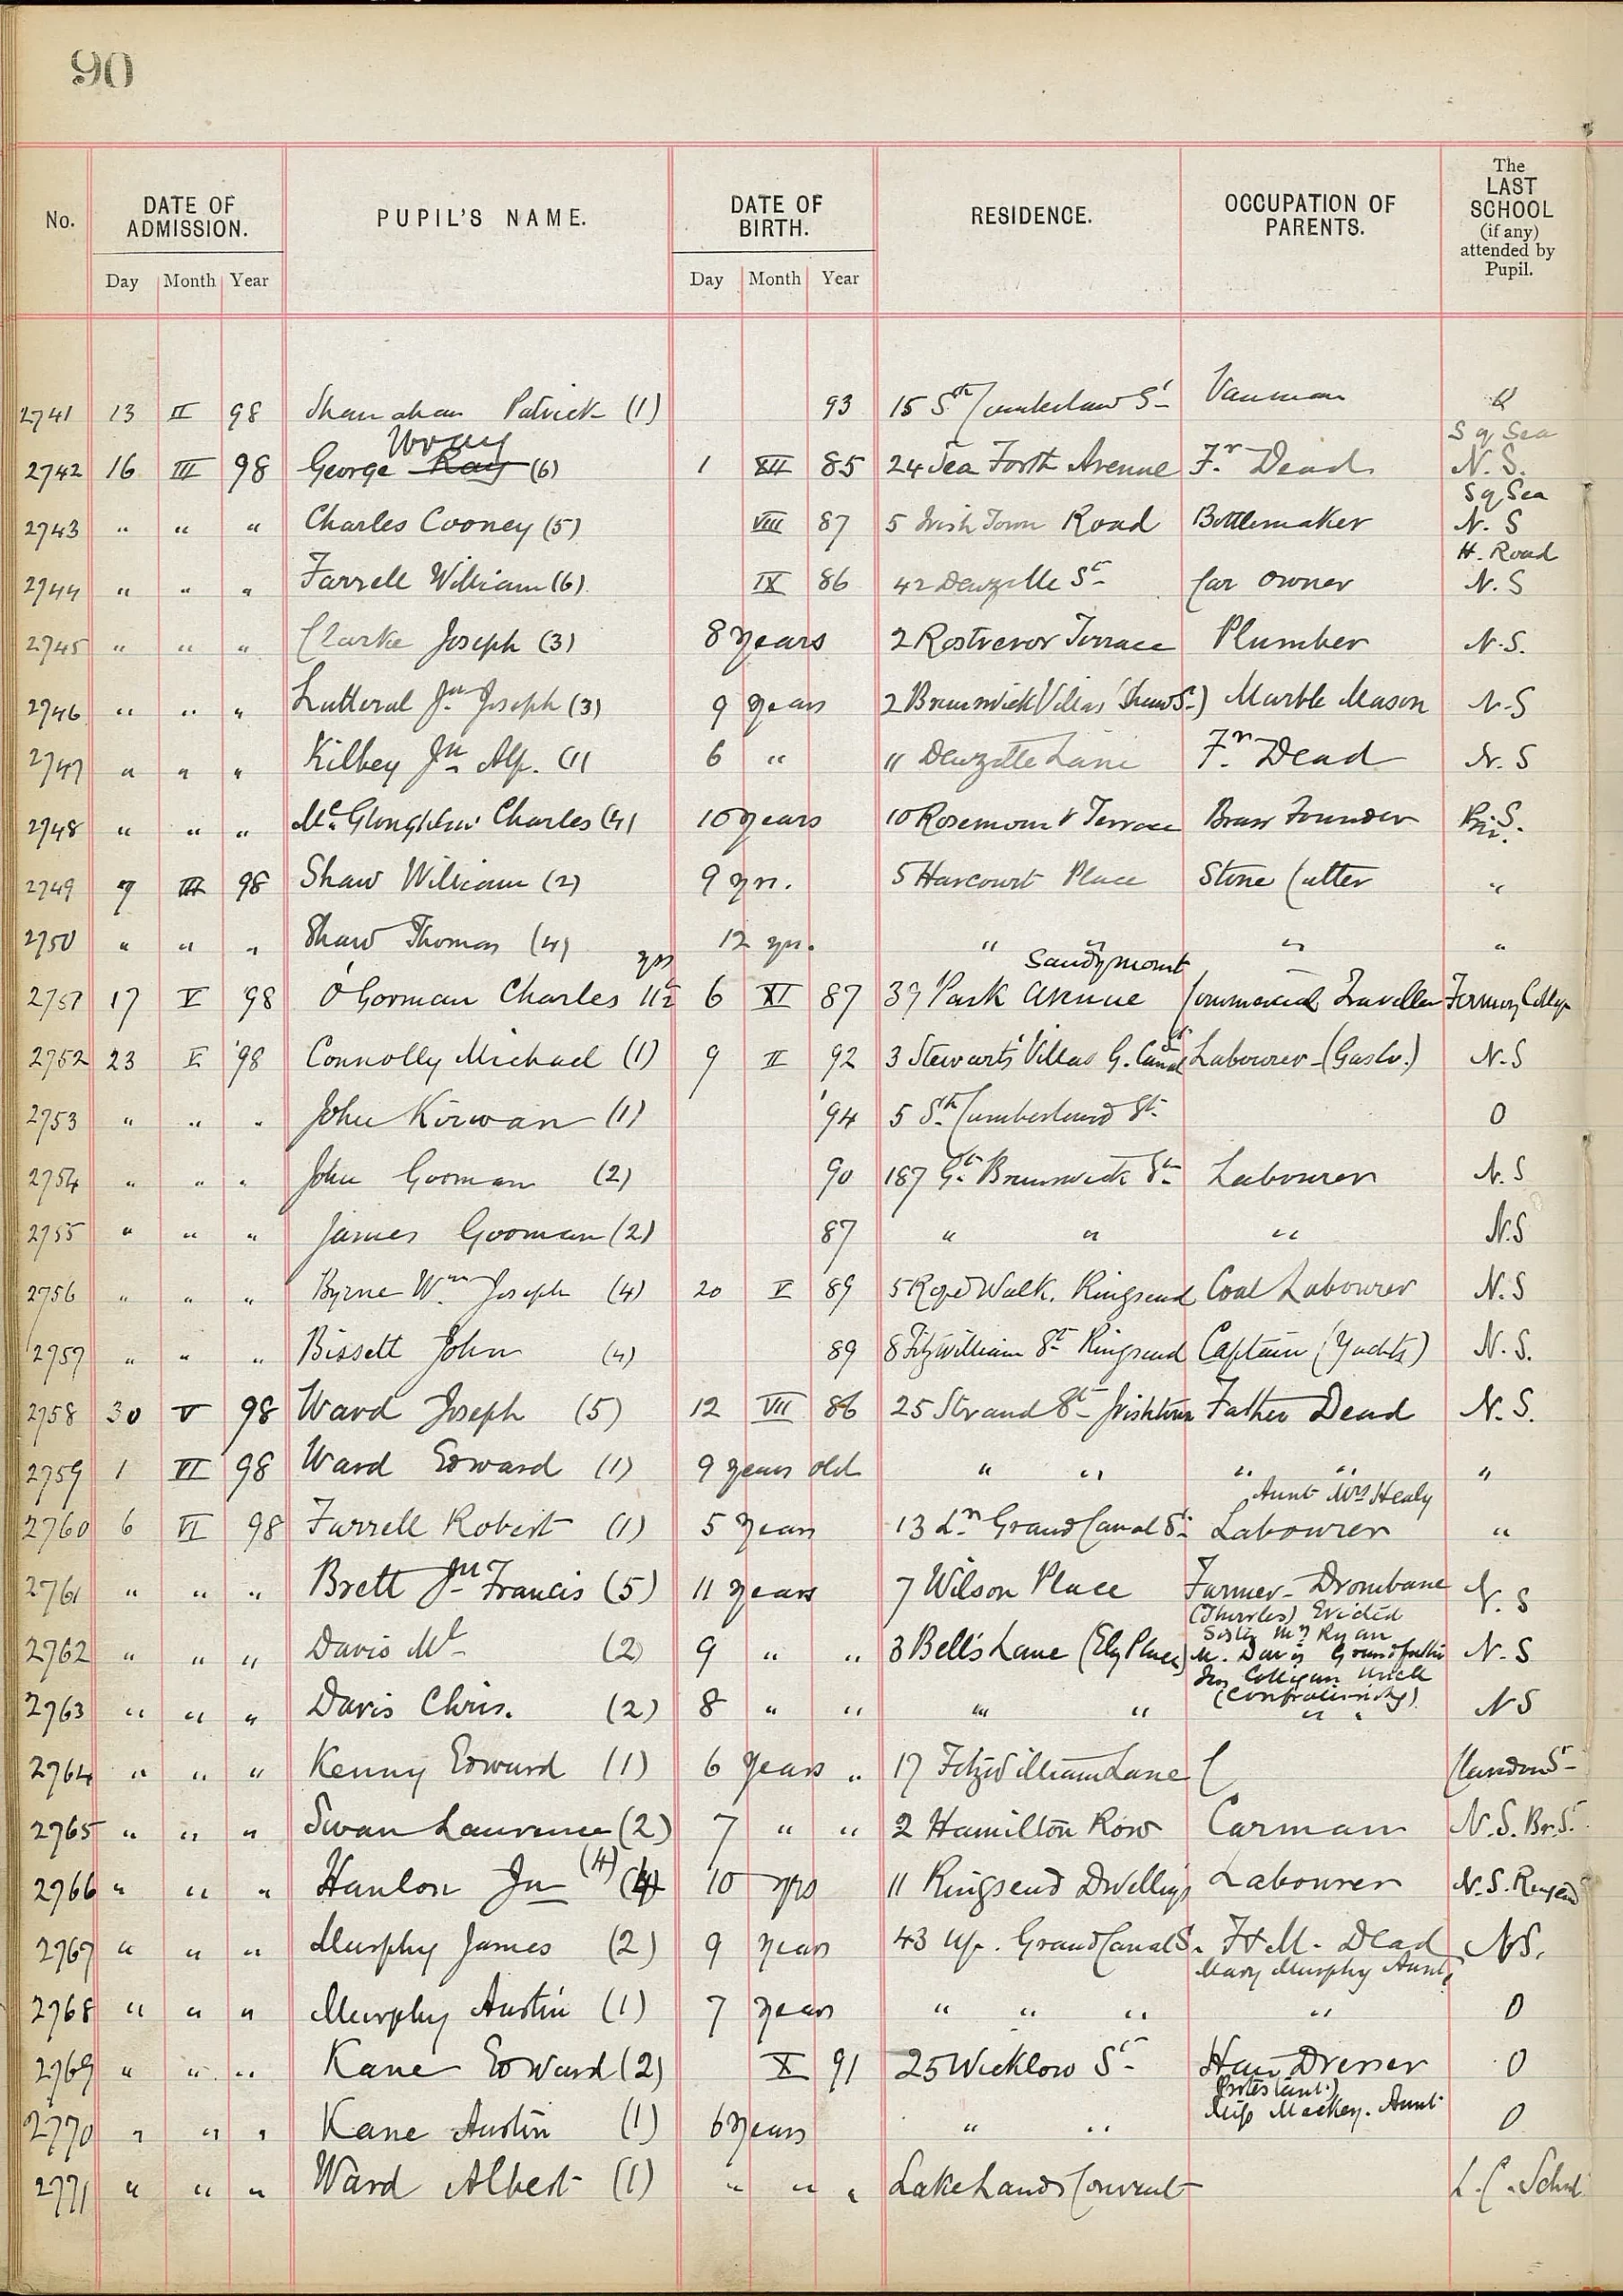 90
No. DATE OF ADMISSION. PUPIL'S NAME. DATE OF BIRTH. RESIDENCE. OCCUPATION OF PARENTS. The LAST SCHOOL (if any) attended by Pupil.
Day Month Year Day Month Year
2741 13 II 98 Shanahan Patrick (1) 93 15 Sth Cumberland St Vanman
Wray Sq Sea
2742 16 III 98 George Ray (6) 1 XII 85 24 Sea Forth Avenue Fr. Dead N.S.
Sq Sea
2743 " " " Charles Cooney (5) VIII 87 5 Irish Town Road Bottlemaker N.S
H. Road
2744 " " " Farrell William (6) IX 86 42 Denzille St Car Owner N.S
2745 " " " Clarke Joseph (3) 8 years 2 Rostrevor Terrace Plumber N.S.
2746 " " " Lutteral Jn Joseph (3) 9 years 2 Brunswick Villas (Shaw St) Marble Mason N.S
2747 " " " Kilbey Jn Alp. (1) 6 " 11 Denzille Lane Fr. Dead N.S
2748 " " " Mc Gloughlin Charles (4) 10 years 10 Rosemount Terrace Brass Founder Pri. S.
2749 7 III 98 Shaw William (2) 9 yrs. 5 Harcourt Place Stone Cutter "
2750 " " " Shaw Thomas (4) 12 yrs. " " " "
yrs Sandymount
2751 17 V 98 O'Gorman Charles 11½ 6 XI 87 39 Park Avenue Commercial Traveller
2752 23 V 98 Connolly Michael (1) 9 II 92 3 Stewarts' Villas G. Canal St Labourer - (Gas Co.) N.S
2753 " " " John Kirwan (1) '94 5 Sth Cumberland St. 0
2754 " " " John Gorman (2) 90 187 Gt. Brunswick St. Labourer N.S
2755 " " " James Gorman (2) 87 " " " N.S
2756 " " " Byrne Wm. Joseph (4) 20 V 89 5 Rope Walk. Ringsend Coal Labourer N.S
2757 " " " Bissett John (4) 89 8 Fitzwilliam St Ringsend Captain (Yachts) N.S.
2758 30 V 98 Ward Joseph (5) 12 VII 86 25 Strand St Irishtown Father Dead N.S.
2759 1 VI 98 Ward Edward (1) 9 years old " " " " "
Aunt Mrs Healy
2760 6 VI 98 Farrell Robert (1) 5 years 13 Lr Grand Canal St. Labourer "
2761 " " " Brett Jn Francis (5) 11 years 7 Wilson Place Farmer - Drombane N.S
(Thurles) Evicted
Sister Mrs Ryan
2762 " " " Davis Ml (2) 9 " " 3 Bell's Lane (Ely Place) M. Davis Grandfather N.S
Jno Colligan Uncle
(Confraternity)
2763 " " " Davis Chris. (2) 8 " " " " " " NS
2764 " " " Kenny Edward (1) 6 years " 17 Fitzwilliam Lane ( Clarendon St
2765 " " " Swan Laurence (2) 7 " " 2 Hamilton Row Carman N.S. Br. St.
2766 " " " Hanlon Jn (4) (4) 10 yrs 11 Ringsend Dwellings Labourer N.S. Ringsend
2767 " " " Murphy James (2) 9 years 43 Up. Grand Canal St. F & M. Dead N.S.
Mary Murphy Aunt
2768 " " " Murphy Austin (1) 7 years " " " " 0
2769 " " " Kane Edward (2) X 91 25 Wicklow St Hair Dresser 0
(Protestant)
Miss Mackey. Aunt
2770 " " " Kane Austin (1) 6 years " " 0
2771 " " " Ward Albert (1) " " " Lakelands Convent L.C. School